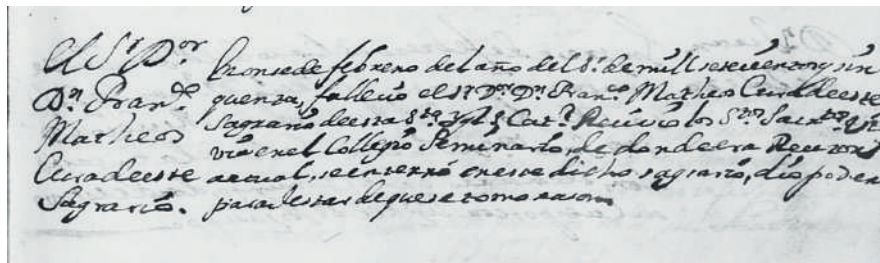 El Sr. Dor.
Dn. Franco.
Matheo
Cura de este
Sagrario.
En onse de febrero del año del Sr. de mill setecientos y sin
quenta, fallecio el Sr. Dor. Dn. Franco. Matheo Cura de este
Sagrario de esta Sta. Ygla. Catl. Recivio los Stos. Sacrtos. Vi
via en el Collegio Seminario, de donde era Rector
actual, se enterró en este dicho sagrario, dio poder
para testar de que se tomo rason